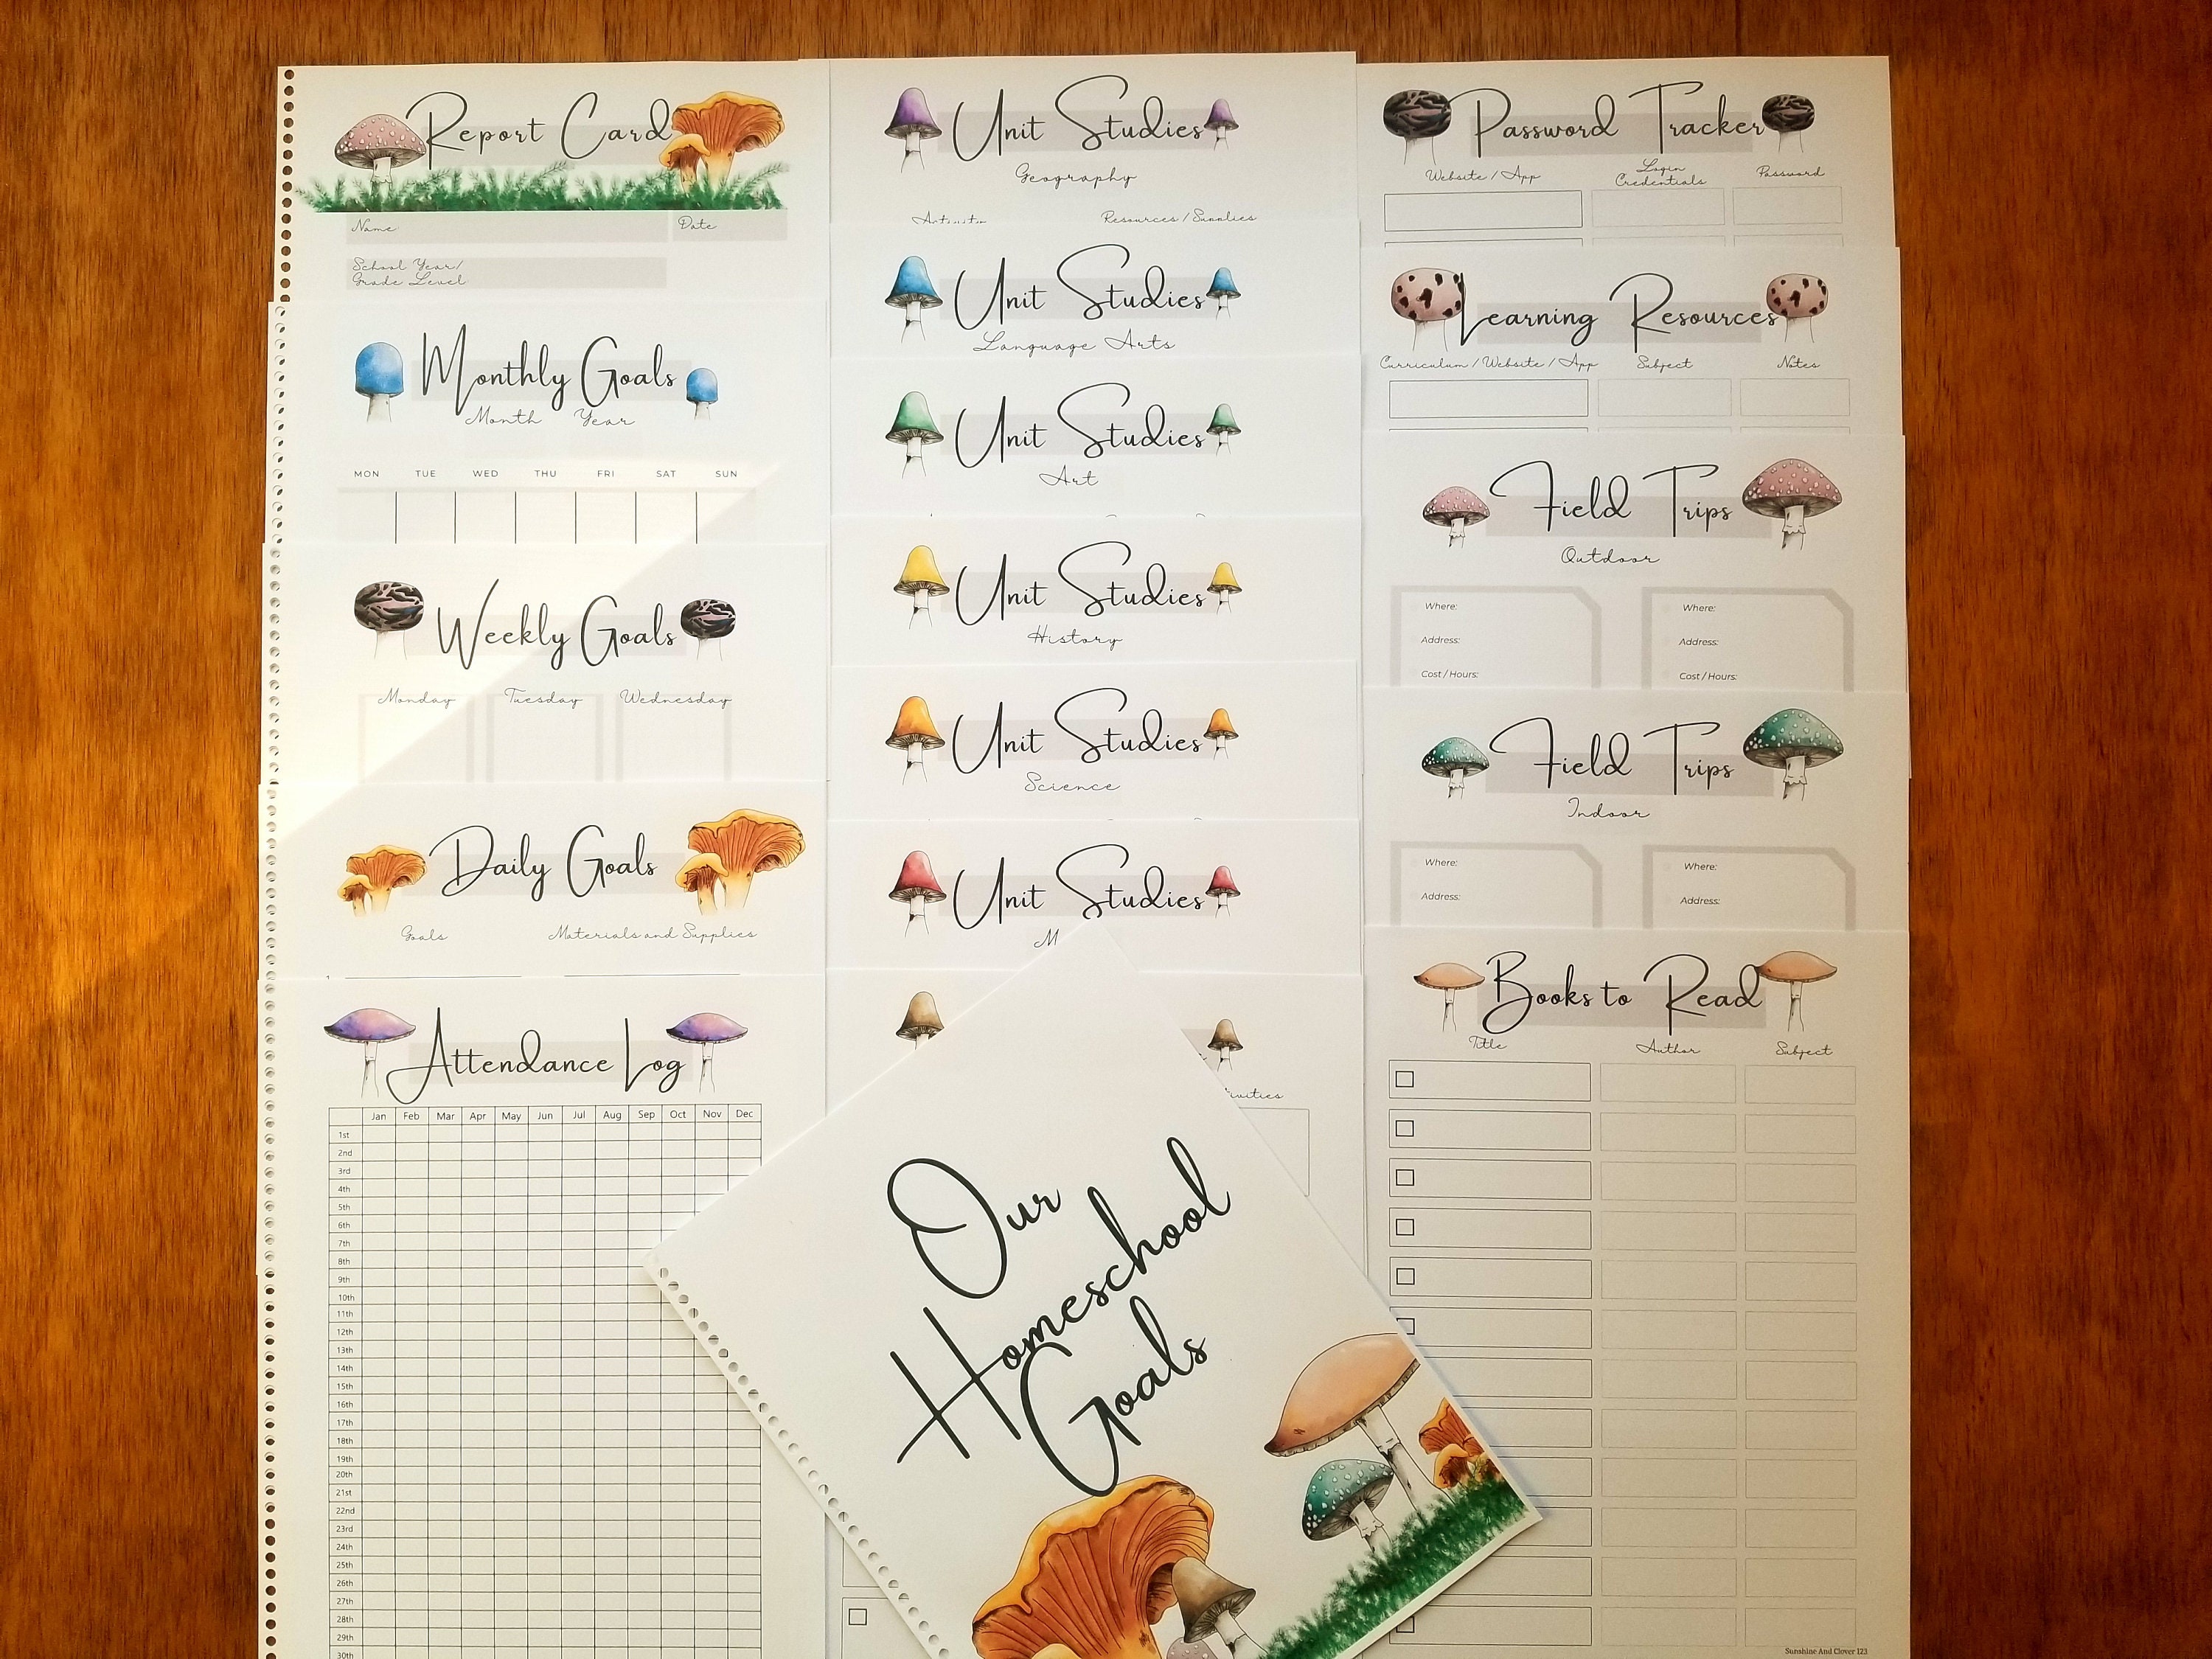 Report Card
Name:
Date
School Year/
Grade Level
Monthly Goals
Month Year
MON TUE WED THU FRI SAT SUN
Weekly Goals
Monday Tuesday Wednesday
Daily Goals
Goals Materials and Supplies
Attendance Log
Jan Feb Mar Apr May Jun Jul Aug Sep Oct Nov Dec
1st
2nd
3rd
4th
5th
6th
7th
8th
9th
10th
11th
12th
13th
14th
15th
16th
17th
18th
19th
20th
21st
22nd
23rd
24th
25th
26th
27th
28th
29th
30th
Unit Studies
Geography
Activities Resources / Supplies
Unit Studies
Language Arts
Unit Studies
Art
Unit Studies
History
Unit Studies
Science
Unit Studies
M
ivities
Our
Homeschool
Goals
Password Tracker
Website / App
Login
Credentials
Password
Learning Resources
Curriculum / Website / App Subject Notes
Field Trips
Outdoor
Where: Where:
Address: Address:
Cost / Hours: Cost / Hours:
Field Trips
Indoor
Where: Where:
Address: Address:
Books to Read
Title Author Subject
Sunshine And Clover 123